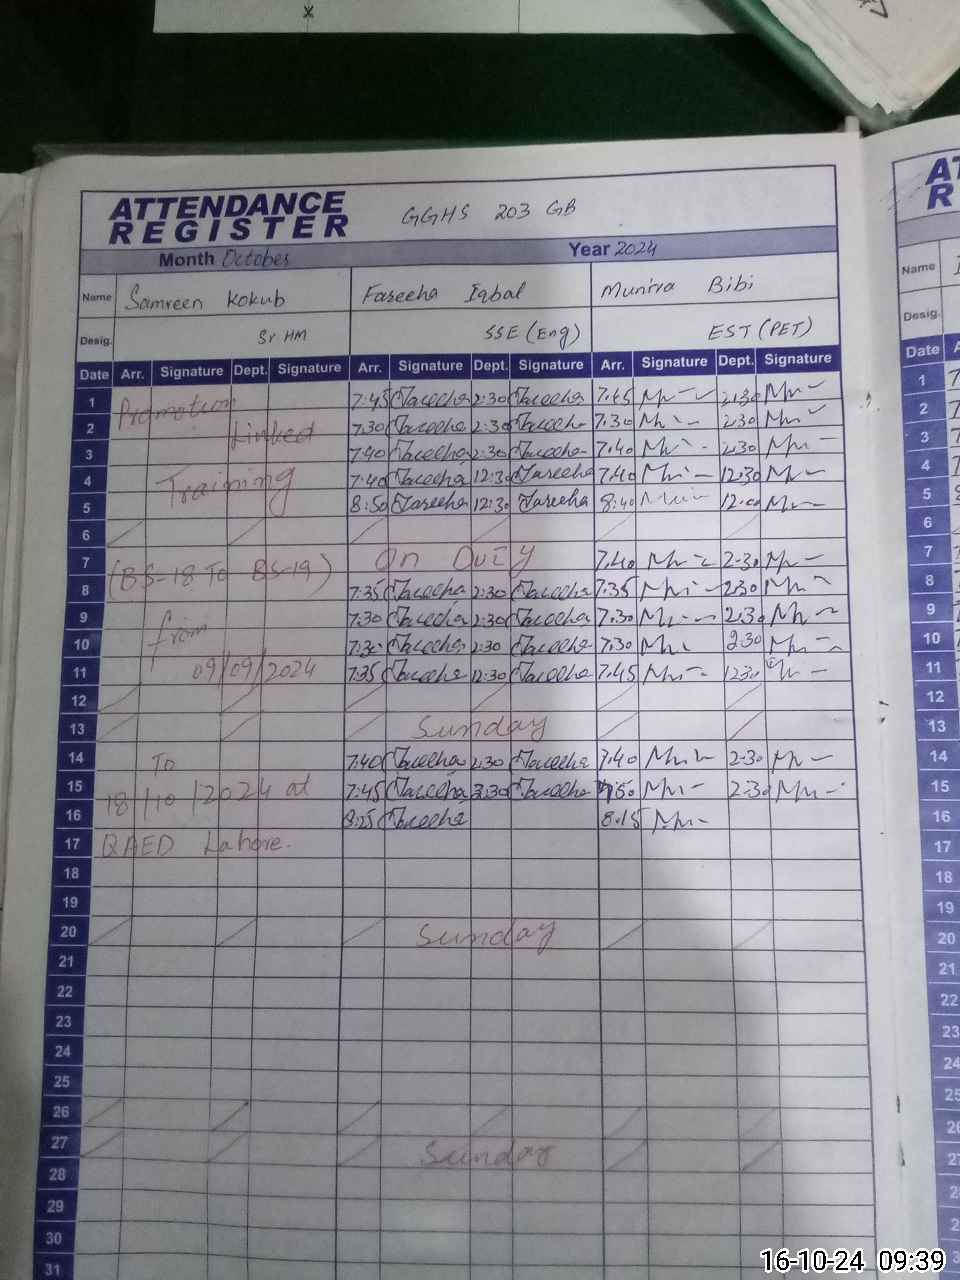 ATTENDANCE
REGISTER
GGHS 203 GB
Month October Year 2024
Name Samreen Kokub Fareeha Iqbal Munira Bibi
Desig. Sr HM SSE (Eng) EST (PET)
Date Arr. Signature Dept. Signature Arr. Signature Dept. Signature Arr. Signature Dept. Signature
1 Promotion 7:45 Fareeha 2:30 Fareeha 7:45 2:30
2 Linked 7:30 Fareeha 2:30 Fareeha 7:30 2:30
3 7:40 Fareeha 2:30 Fareeha 7:40 2:30
4 Training 7:40 Fareeha 12:30 Fareeha 7:40 12:30
5 8:50 Fareeha 12:30 Fareeha 8:40
6
7 (BS-18 To BS-19) On Duty 7:40 2:30
8 7:35 Fareeha 2:30 Fareeha 7:35 2:30
9 from 7:30 Fareeha 2:30 Fareeha 7:30 2:30
10 7:30 Fareeha 2:30 Fareeha 7:30 2:30
11 09/09/2024 7:35 Fareeha 12:30 Fareeha 7:45 12:30
12
13 Sunday
14 To 7:40 Fareeha 2:30 Fareeha 7:40 2:30
15 18/10/2024 at 7:45 Fareeha 2:30 Fareeha 7:50 2:30
16 8:25 Fareeha 8:15
17 QAED Lahore.
18
19
20 Sunday
21
22
23
24
25
26
27 Sunday
28
29
30
31
Name
Desig.
Date
1
2
3
4
5
6
7
8
9
10
11
12
13
14
15
16
17
18
19
20
21
22
23
24
25
26
27
16-10-24 09:39